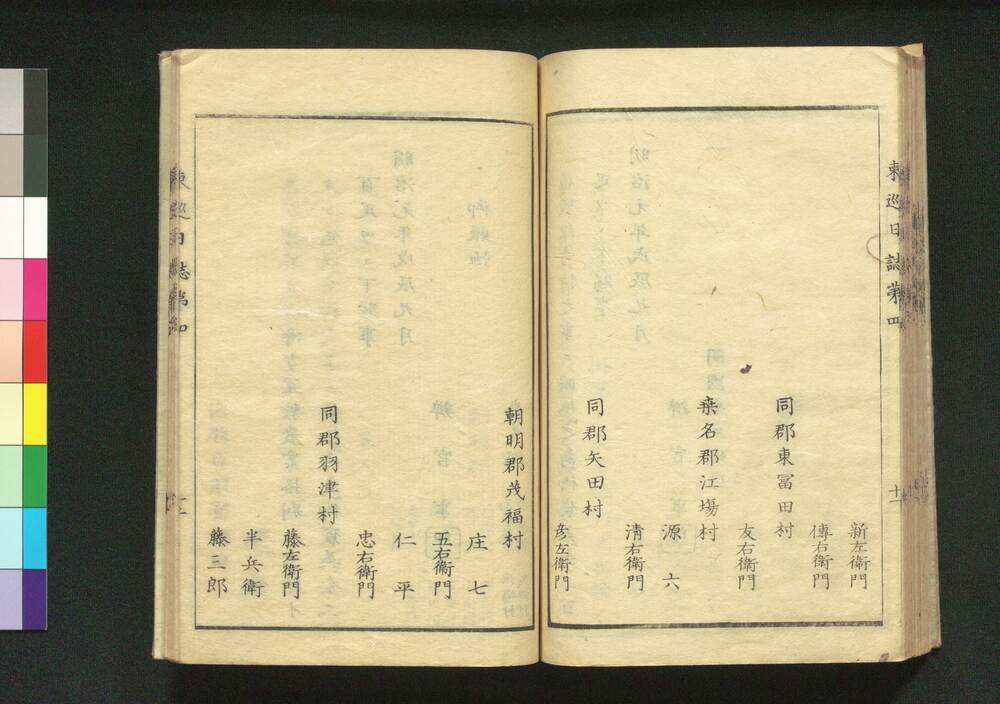 東巡日誌第四
十一
新左衛門
傳右衛門
同郡東冨田村
友右衛門
桒名郡江塲村
源六
清右衛門
同郡矢田村
彦左衛門
朝明郡茂福村
庄七
五右衛門
仁平
忠右衛門
同郡羽津村
藤左衛門
半兵衛
藤三郎
東巡日誌第四